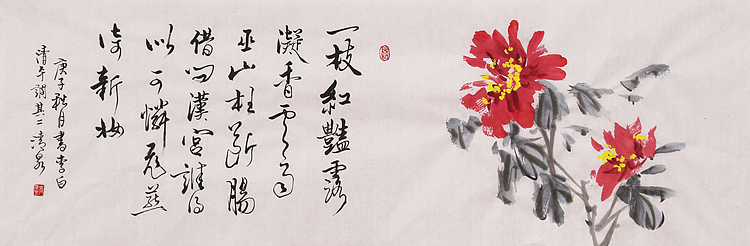 一枝紅艷露
凝香雲雨
巫山枉斷腸
借問漢宮誰得
似可憐飛燕
倚新妝
庚子秋月書李白
清平調其二清泉